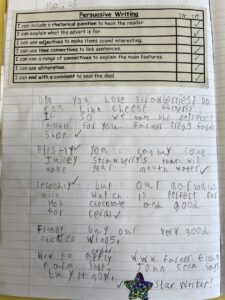 Persuasive Writing
I can include a rhetorical question to hook the reader.
I can explain what the advert is for.
I can use adjectives to make items sound interesting.
I can use time connectives to link sentences.
I can use a range of connectives to explain the main features.
I can use alliteration.
I can end with a comment to seal the deal.
Do you love strawberries? Do
you like cheese
If so we have the perfect
for you. Farmer farm
shop
Firstly you can buy some
Juicey strawberrys that wil
make your mouth water
secondly buy our
milk which is perfect for
hot chocolate and good
for cerial
buy our very good
chicken wings.
How to www. farmer
farm shop. John cena says
buy it now.
Star Writer!